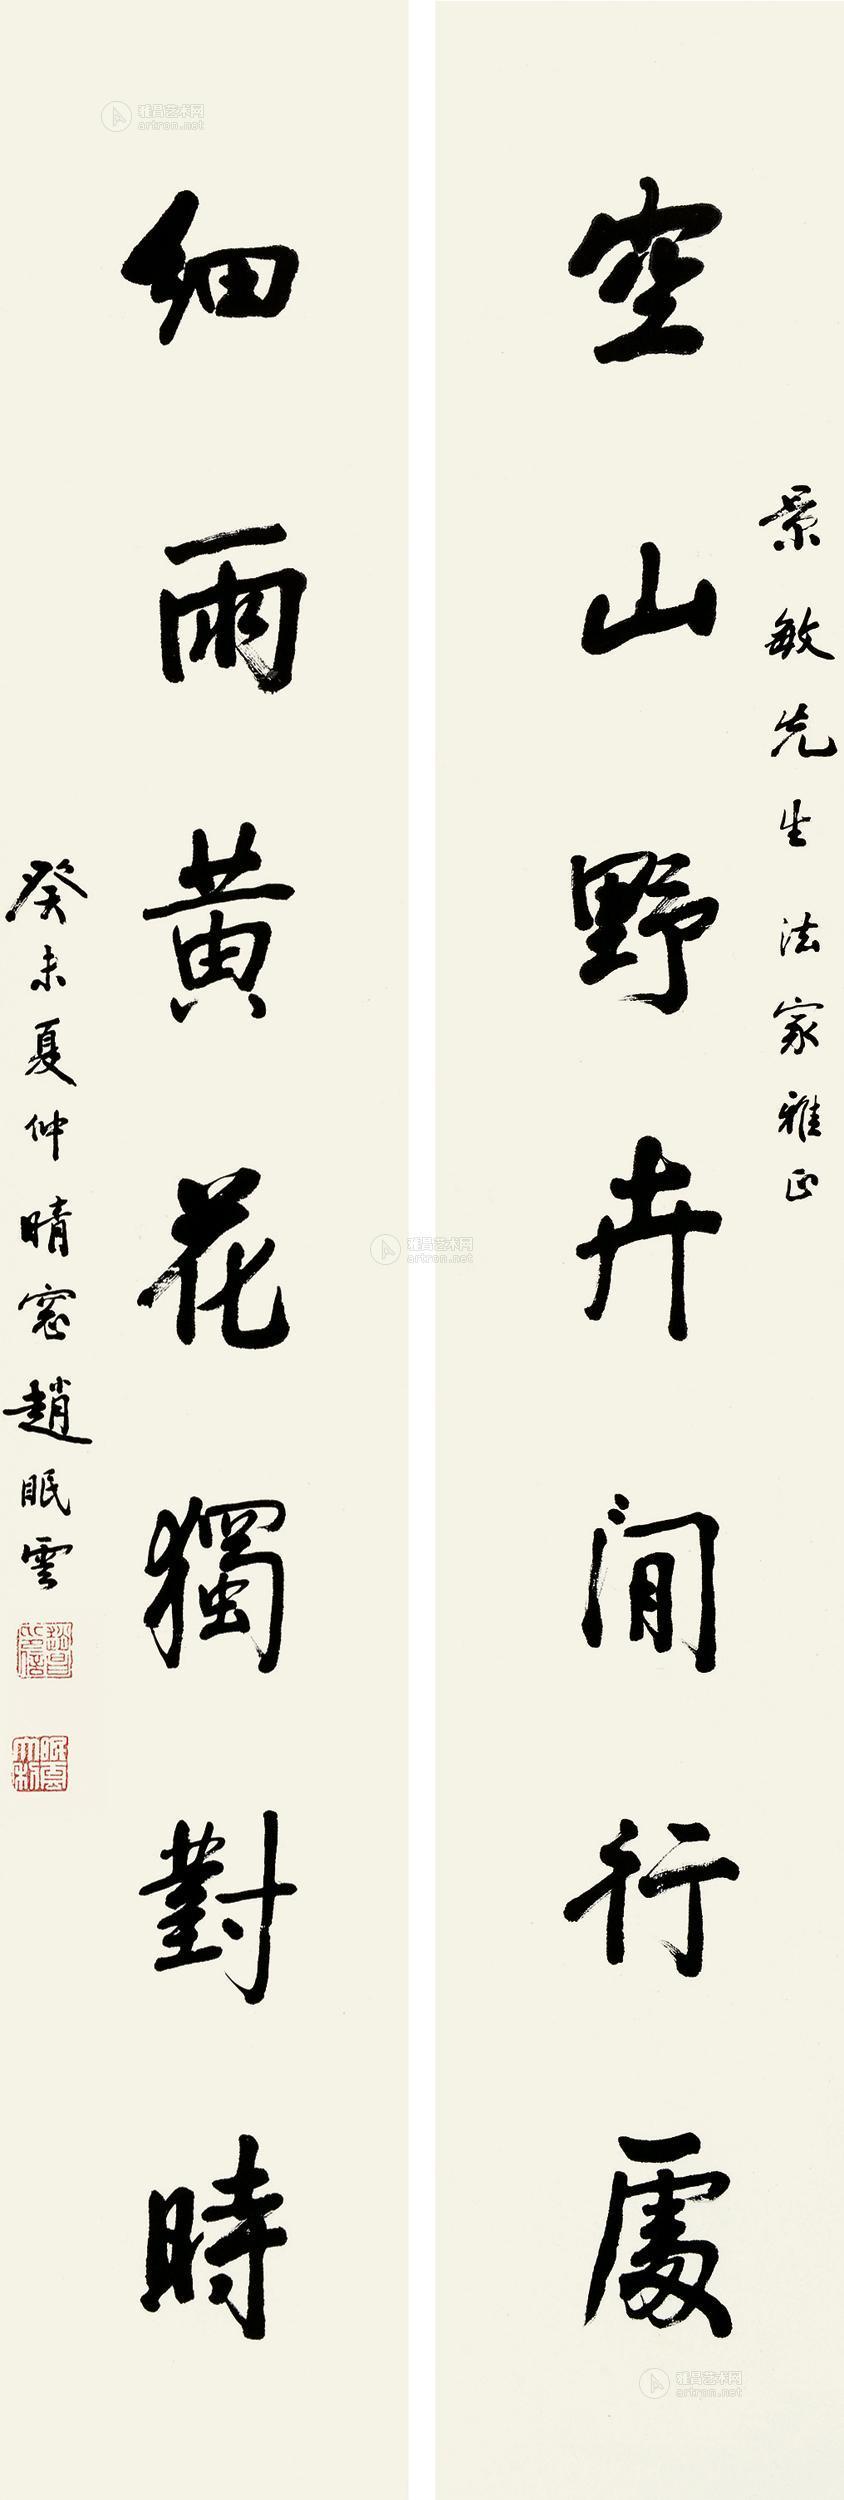 景敏先生法家雅正
空山野卉閒行處
細雨黄花獨對時
癸未夏仲晴窓趙眠雲
雅昌艺术网
artron.net
雅昌艺术网
artron.net
雅昌艺术网
artron.net